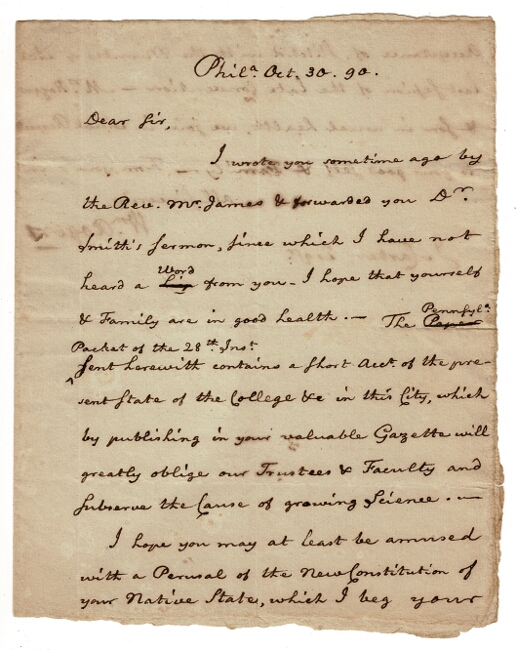 Phila. Oct. 30. 90.
Dear Sir,
I wrote you sometime ago by
the Rev. Mr. James & forwarded you Dr.
Smith's Sermon, since which I have not
heard a Word from you - I hope that yourself
& Family are in good health. — The Pennsyla.
Packet of the 28th. Inst.
Sent herewith contains a short Acct. of the pre-
sent State of the College &c in this City, which
by publishing in your valuable Gazette will
greatly oblige our Trustees & Faculty and
Subserve the Cause of growing Science. —
I hope you may at least be amused
with a Perusal of the New Constitution of
your Native State, which I beg your